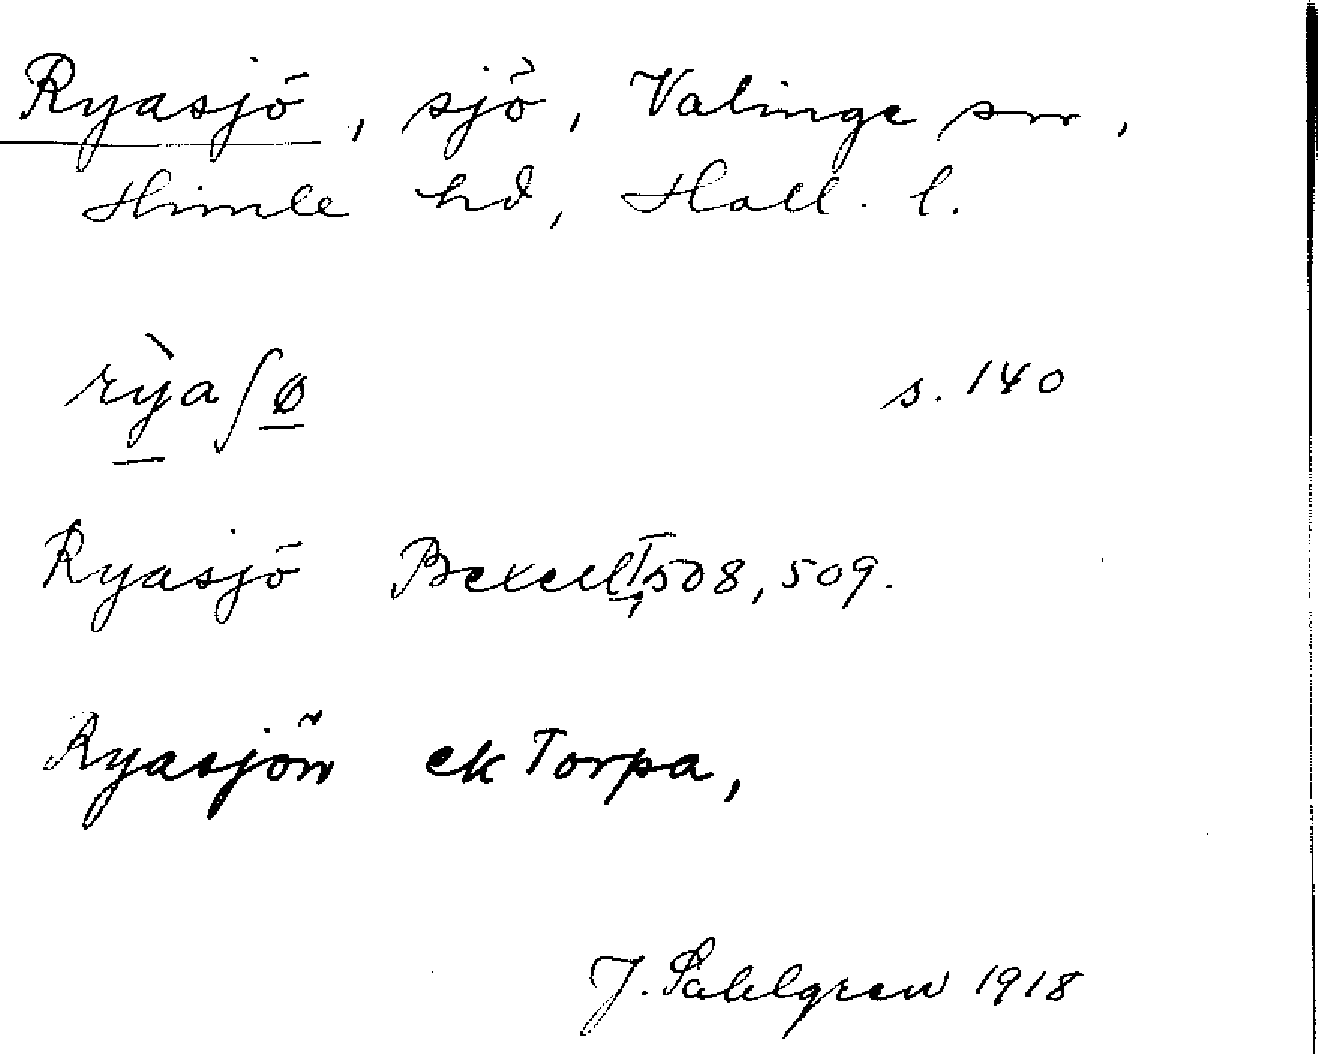 Ryasjö, sjö, Valinge sn,
Himle hd, Hall. l.
rỳaʃø s. 140
Ryasjö Bexell I, 508, 509.
Ryasjön ek Torpa,
J. Sahlgren 1918